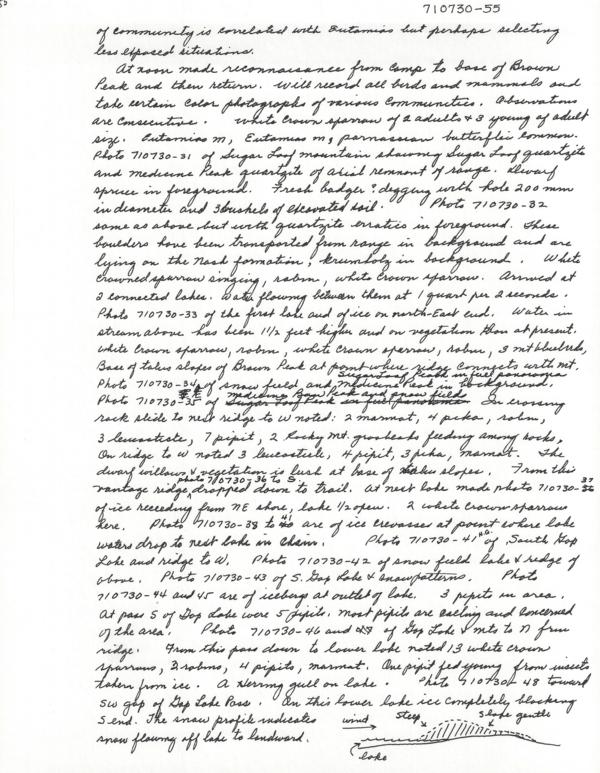 710730-55
of community is correlated with Eutamias but perhaps selecting
less exposed situations.
At noon made reconnaisance from camp to base of Brown
Peak and then return. Will record all birds and mammals and
take certain color photographs of various communities. Observations
are consecutive. White crown sparrow of 2 adults & 3 young of adult
size. Eutamias m, Eutamias m, parnassian butterflies common.
Photo 710730-31 of Sugar Loaf mountain showing Sugar Loaf quartzite
and medicine Peak quartzite of axial remnant of range. Dwarf
spruce in foreground. Fresh badger? digging with hole 200 mm
in diameter and 3 bushels of excavated soil. Photo 710730-32
same as above but with quartzite erratics in foreground. These
boulders have been transported from range in background and are
lying on the Nash formation, krumholz in background. White
crowned sparrow singing, robin, white crown sparrow. Arrived at
2 connected lakes. Water flowing between them at 1 quart per 2 seconds.
Photo 710730-33 of the first lake and of ice on north-East end. Water in
stream above has been 1 1/2 feet higher and on vegetation than at present.
White crown sparrow, robin, white crown sparrow, robin, 3 mt bluebirds,
Base of takes slopes of Brown Peak at point where ridge connects with mt.
Sugarloaf Peak in full panorama
Photo 710730-34 of snow field and medicine Peak in background.
Medicine Bow Peak and snow field
Photo 710730-35 of Sugar Loaf Peak in full panorama. In crossing
rock slide to next ridge to W noted: 2 marmat, 4 pika, robin,
3 leucosticte, 7 pipit, 2 Rocky Mt. grosbeaks feeding among rocks,
On ridge to W noted 3 leucosticte, 4 pipit, 3 pika, marmat. The
dwarf willows & vegetation is lush at base of talus slopes. From this
photo 710730-36 to S
vantage ridge, dropped down to trail. At next lake made photo 710730-37
of ice receeding from NE shore, lake 1/2 open. 2 white crown sparrows
here. Photo 710730-38 to 41 are of ice crevasses at point where lake
waters drop to next lake in chain. Photo 710730-41 of South Gap
Lake and ridge to W. Photo 710730-42 of snow field lake & ridge of
above. Photo 710730-43 of S. Gap Lake & snow patterns. Photo
710730-44 and 45 are of icebergs at outlet of lake. 3 pipits in area.
At pass S of Gap Lake were 5 pipits. Most pipits are calling and concerned
of the area. Photo 710730-46 and 47 of Gap Lake & mts to N from
ridge. From this pass down to lower lake noted 13 white crown
sparrows, 2 robins, 4 pipits, marmat. One pipit fed young from insects
taken from ice. A Herring gull on lake. Photo 710730-48 toward
SW gap of Gap Lake Pass. On this lower lake ice completely blocking
S end. The snow profile indicates
snow flowing off lake to landward.
wind
steep
slope gentle
lake